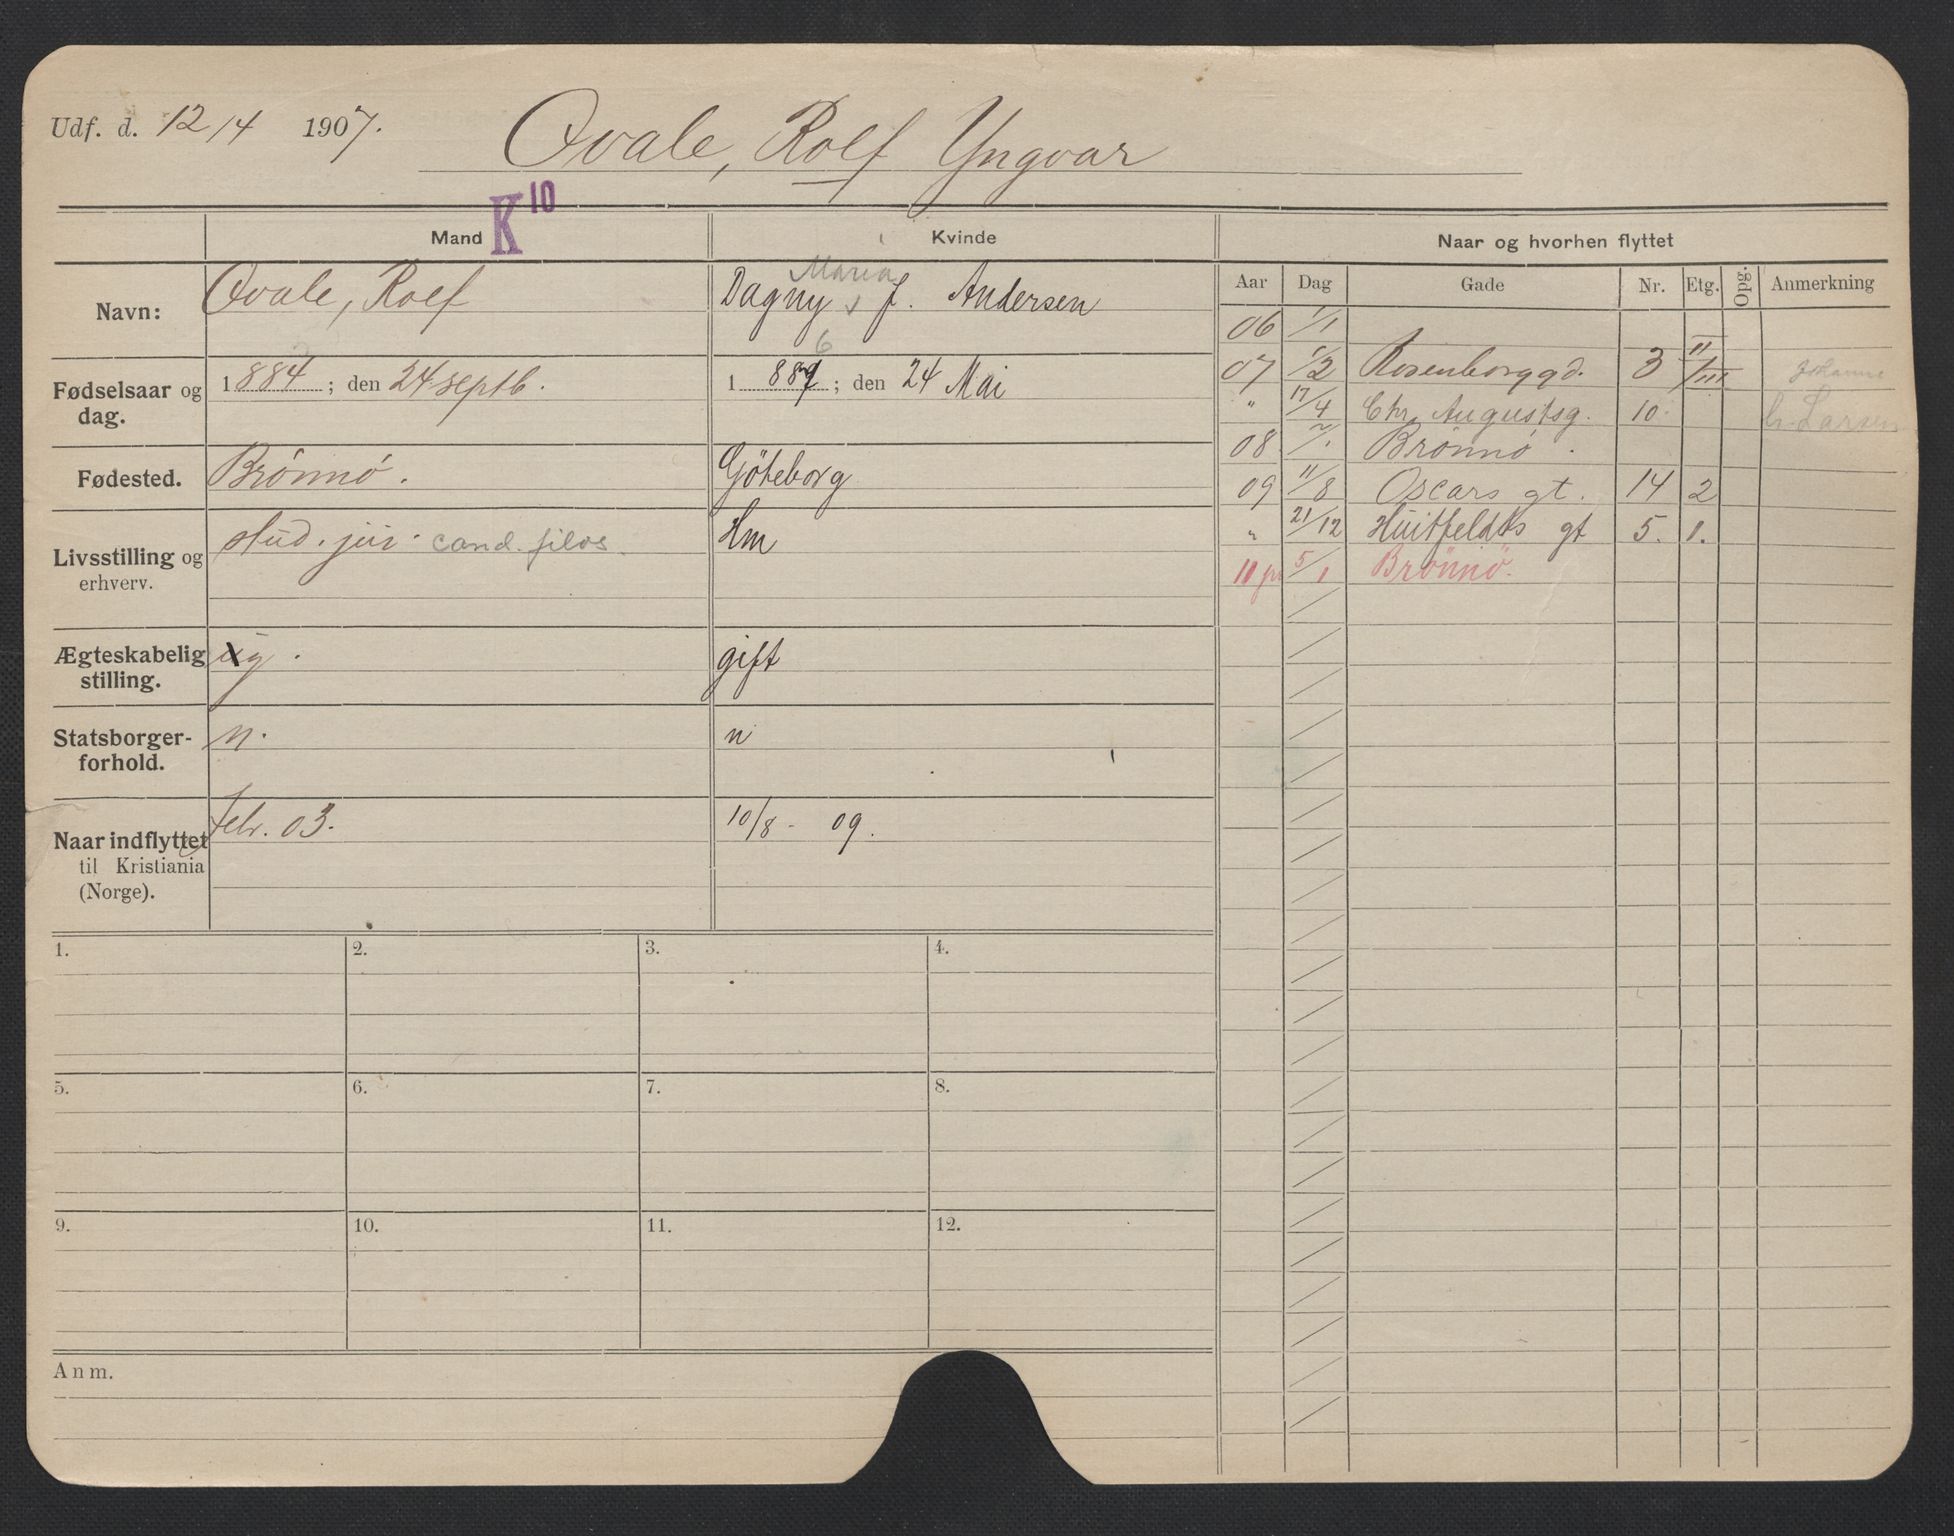 Udf. d. 12/4 1907.
Qvale, Rolf Yngvar
K 10
Mand
Kvinde
Naar og hvorhen flyttet
Aar Dag Gade Nr. Etg. Opg. Anmerkning
Navn:
Qvale, Rolf
Maria
Dagny J. Andersen
Fødselsaar og
dag.
1884; den 24 septb.
6
1 887; den 24 Mai
Fødested.
Brönnö.
Göteborg
Livsstilling og
erhverv.
stud. jur. cand. filos.
Hm
Ægteskabelig
stilling.
ug.
gift
Statsborger-
forhold.
n.
n
Naar indflyttet
til Kristiania
(Norge).
Febr. 03.
10/8 - 09.
06 1/1
07 1/2 Rosenborggd. 3 II/III Johanne
" 17/4 Chr. Augustsg. 10. Larsen
08 Brönnö.
09 11/8 Oscars gt. 14 2
" 21/12 Huitfeldts gt 5. 1.
10 5/1 Brönnö.
1.
2.
3.
4.
5.
6.
7.
8.
9.
10.
11.
12.
Anm.